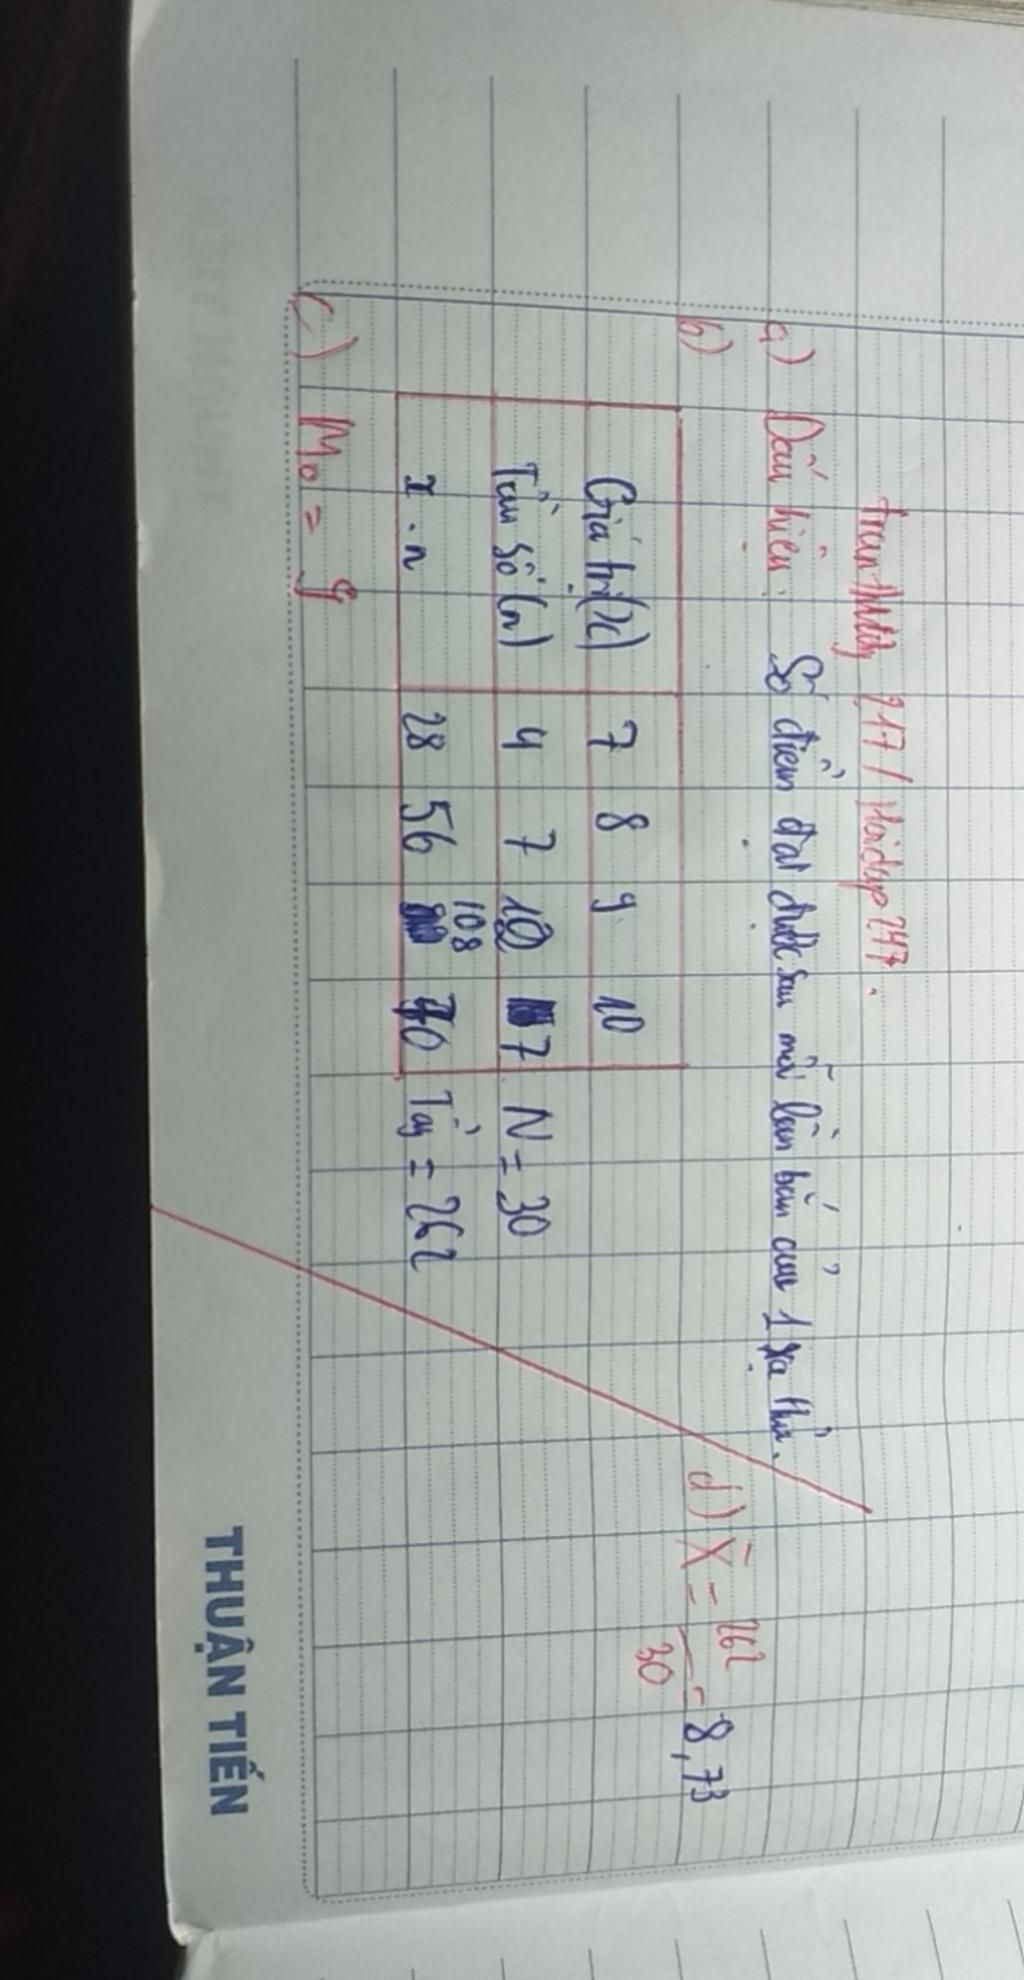 tranthuỳ 217 / Hoidap247.
a) Dấu hiệu: Số điểm đạt được sau mỗi lần bắn của 1 xạ thủ.
b)
Giá trị (x) 7 8 9 10
Tần số (n) 4 7 12 7 N = 30
x . n 28 56 108 70 Tổng = 262
c) M₀ = 9
d) X̄ = 262/30 = 8,73
THUẬN TIẾN